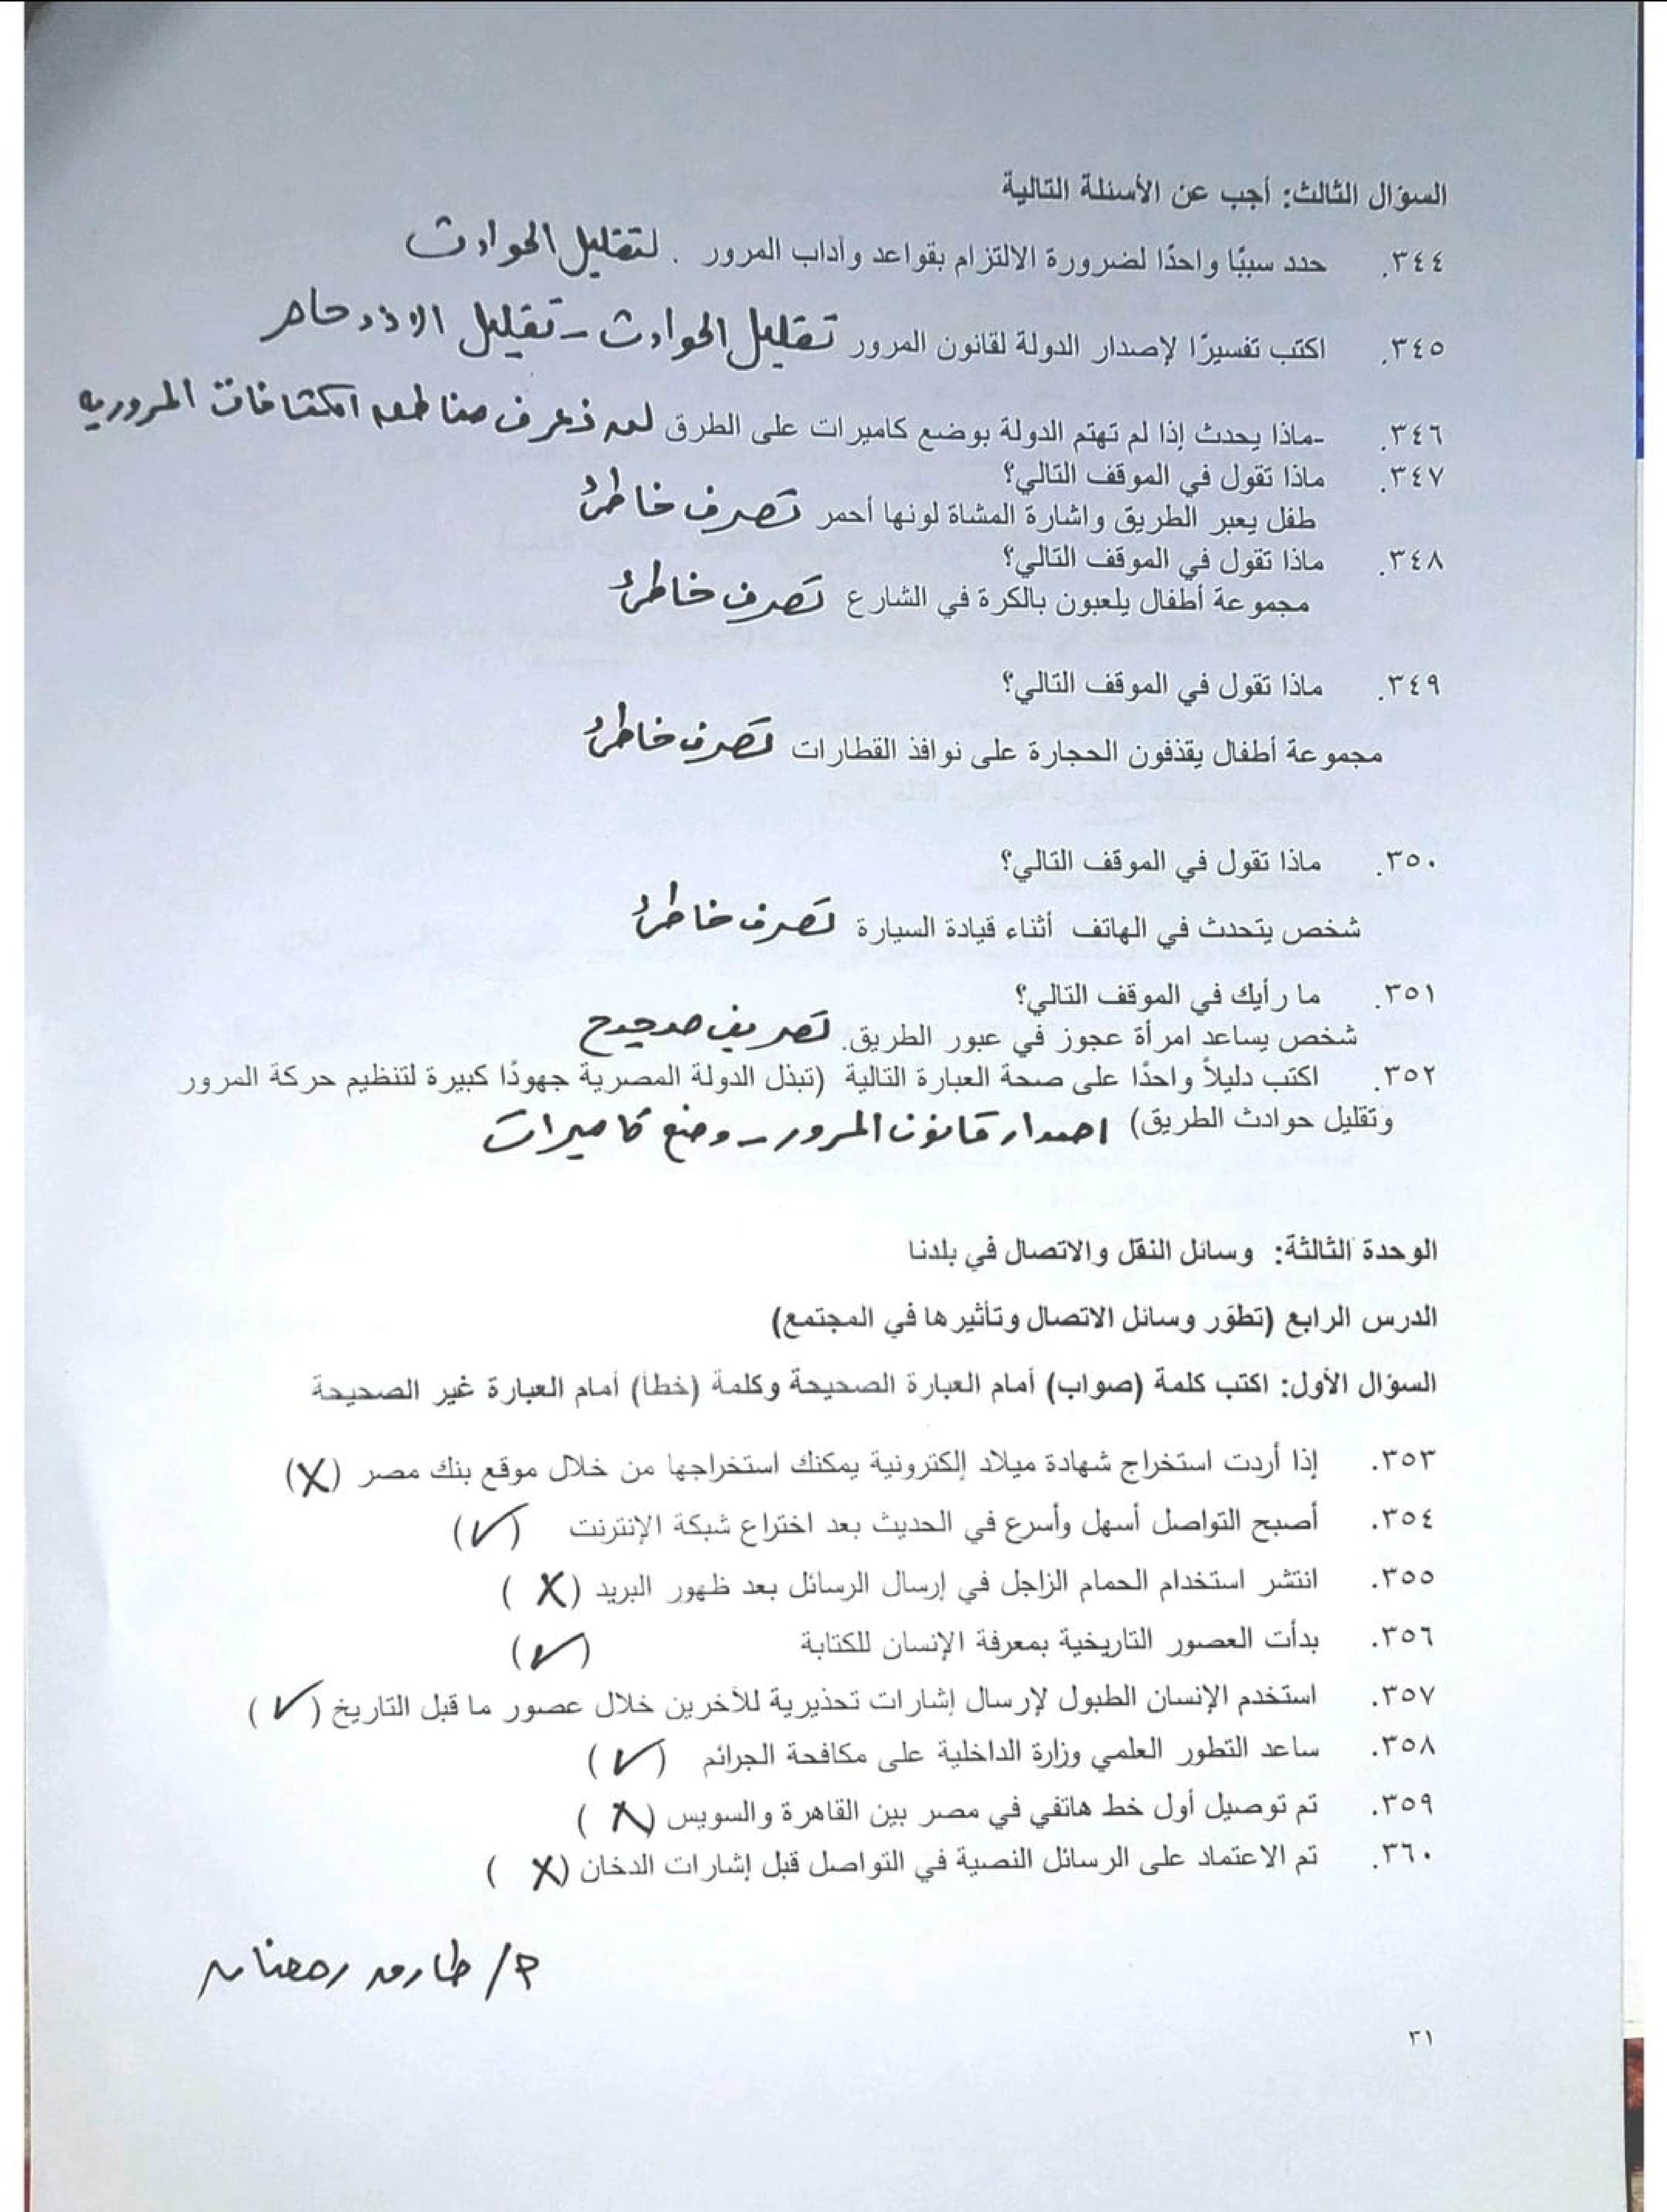 السؤال الثالث: أجب عن الأسئلة التالية
٣٤٤. حدد سببًا واحدًا لضرورة الالتزام بقواعد وآداب المرور . لتقليل الحوادث
٣٤٥. اكتب تفسيرًا لإصدار الدولة لقانون المرور تقليل الحوادث - تقليل الازدحام
٣٤٦. -ماذا يحدث إذا لم تهتم الدولة بوضع كاميرات على الطرق لن نعرف مناطق الكثافات المرورية
٣٤٧. ماذا تقول في الموقف التالي؟
طفل يعبر الطريق واشارة المشاة لونها أحمر تصرف خاطئ
٣٤٨. ماذا تقول في الموقف التالي؟
مجموعة أطفال يلعبون بالكرة في الشارع تصرف خاطئ
٣٤٩. ماذا تقول في الموقف التالي؟
مجموعة أطفال يقذفون الحجارة على نوافذ القطارات تصرف خاطئ
٣٥٠. ماذا تقول في الموقف التالي؟
شخص يتحدث في الهاتف أثناء قيادة السيارة تصرف خاطئ
٣٥١. ما رأيك في الموقف التالي؟
شخص يساعد امرأة عجوز في عبور الطريق. تصريف صحيح
٣٥٢. اكتب دليلاً واحدًا على صحة العبارة التالية (تبذل الدولة المصرية جهودًا كبيرة لتنظيم حركة المرور
وتقليل حوادث الطريق) اصدار قانون المرور - وضع كاميرات
الوحدة الثالثة: وسائل النقل والاتصال في بلدنا
الدرس الرابع (تطوّر وسائل الاتصال وتأثيرها في المجتمع)
السؤال الأول: اكتب كلمة (صواب) أمام العبارة الصحيحة وكلمة (خطأ) أمام العبارة غير الصحيحة
٣٥٣. إذا أردت استخراج شهادة ميلاد إلكترونية يمكنك استخراجها من خلال موقع بنك مصر (X)
٣٥٤. أصبح التواصل أسهل وأسرع في الحديث بعد اختراع شبكة الإنترنت (✓)
٣٥٥. انتشر استخدام الحمام الزاجل في إرسال الرسائل بعد ظهور البريد (X)
٣٥٦. بدأت العصور التاريخية بمعرفة الإنسان للكتابة (✓)
٣٥٧. استخدم الإنسان الطبول لإرسال إشارات تحذيرية للآخرين خلال عصور ما قبل التاريخ (✓)
٣٥٨. ساعد التطور العلمي وزارة الداخلية على مكافحة الجرائم (✓)
٣٥٩. تم توصيل أول خط هاتفي في مصر بين القاهرة والسويس (X)
٣٦٠. تم الاعتماد على الرسائل النصية في التواصل قبل إشارات الدخان (X)
م/ طارق رمضان
٣١